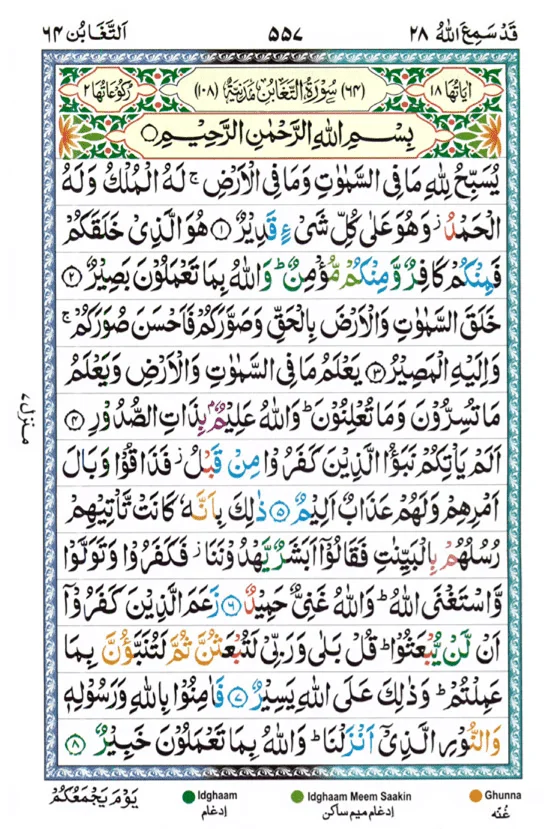 قَدْ سَمِعَ اللّٰهُ ٢٨
٥٥٧
اَلتَّغَابُن ٦٤
اٰيَاتُهَا ١٨
(٦٤) سُوْرَةُ التَّغَابُنِ مَدَنِيَّةٌ (١٠٨)
رُكُوْعَاتُهَا ٢
بِسْمِ اللّٰهِ الرَّحْمٰنِ الرَّحِيْمِ
يُسَبِّحُ لِلّٰهِ مَا فِى السَّمٰوٰتِ وَمَا فِى الْاَرْضِ ۚ لَهُ الْمُلْكُ وَلَهُ
الْحَمْدُ ۫ وَهُوَ عَلٰى كُلِّ شَىْءٍ قَدِيْرٌ ﴿١﴾ هُوَ الَّذِىْ خَلَقَكُمْ
فَمِنْكُمْ كَافِرٌ وَّمِنْكُمْ مُّؤْمِنٌ ؕ وَاللّٰهُ بِمَا تَعْمَلُوْنَ بَصِيْرٌ ﴿٢﴾
خَلَقَ السَّمٰوٰتِ وَالْاَرْضَ بِالْحَقِّ وَصَوَّرَكُمْ فَاَحْسَنَ صُوَرَكُمْ ۚ
وَاِلَيْهِ الْمَصِيْرُ ﴿٣﴾ يَعْلَمُ مَا فِى السَّمٰوٰتِ وَالْاَرْضِ وَيَعْلَمُ
مَا تُسِرُّوْنَ وَمَا تُعْلِنُوْنَ ؕ وَاللّٰهُ عَلِيْمٌۢ بِذَاتِ الصُّدُوْرِ ﴿٤﴾
اَلَمْ يَاْتِكُمْ نَبَؤُا الَّذِيْنَ كَفَرُوْا مِنْ قَبْلُ ۫ فَذَاقُوْا وَبَالَ
اَمْرِهِمْ وَلَهُمْ عَذَابٌ اَلِيْمٌ ﴿٥﴾ ذٰلِكَ بِاَنَّهٗ كَانَتْ تَّاْتِيْهِمْ
رُسُلُهُمْ بِالْبَيِّنٰتِ فَقَالُوْٓا اَبَشَرٌ يَّهْدُوْنَنَا ۫ فَكَفَرُوْا وَتَوَلَّوْا
وَّاسْتَغْنَى اللّٰهُ ؕ وَاللّٰهُ غَنِىٌّ حَمِيْدٌ ﴿٦﴾ زَعَمَ الَّذِيْنَ كَفَرُوْٓا
اَنْ لَّنْ يُّبْعَثُوْا ؕ قُلْ بَلٰى وَرَبِّىْ لَتُبْعَثُنَّ ثُمَّ لَتُنَبَّؤُنَّ بِمَا
عَمِلْتُمْ ؕ وَذٰلِكَ عَلَى اللّٰهِ يَسِيْرٌ ﴿٧﴾ فَاٰمِنُوْا بِاللّٰهِ وَرَسُوْلِهٖ
وَالنُّوْرِ الَّذِىْٓ اَنْزَلْنَا ؕ وَاللّٰهُ بِمَا تَعْمَلُوْنَ خَبِيْرٌ ﴿٨﴾
منزل ٧
يَوْمَ يَجْمَعُكُمْ
Idghaam
اِدغام
Idghaam Meem Saakin
اِدغام ميم ساكن
Ghunna
غُنّه